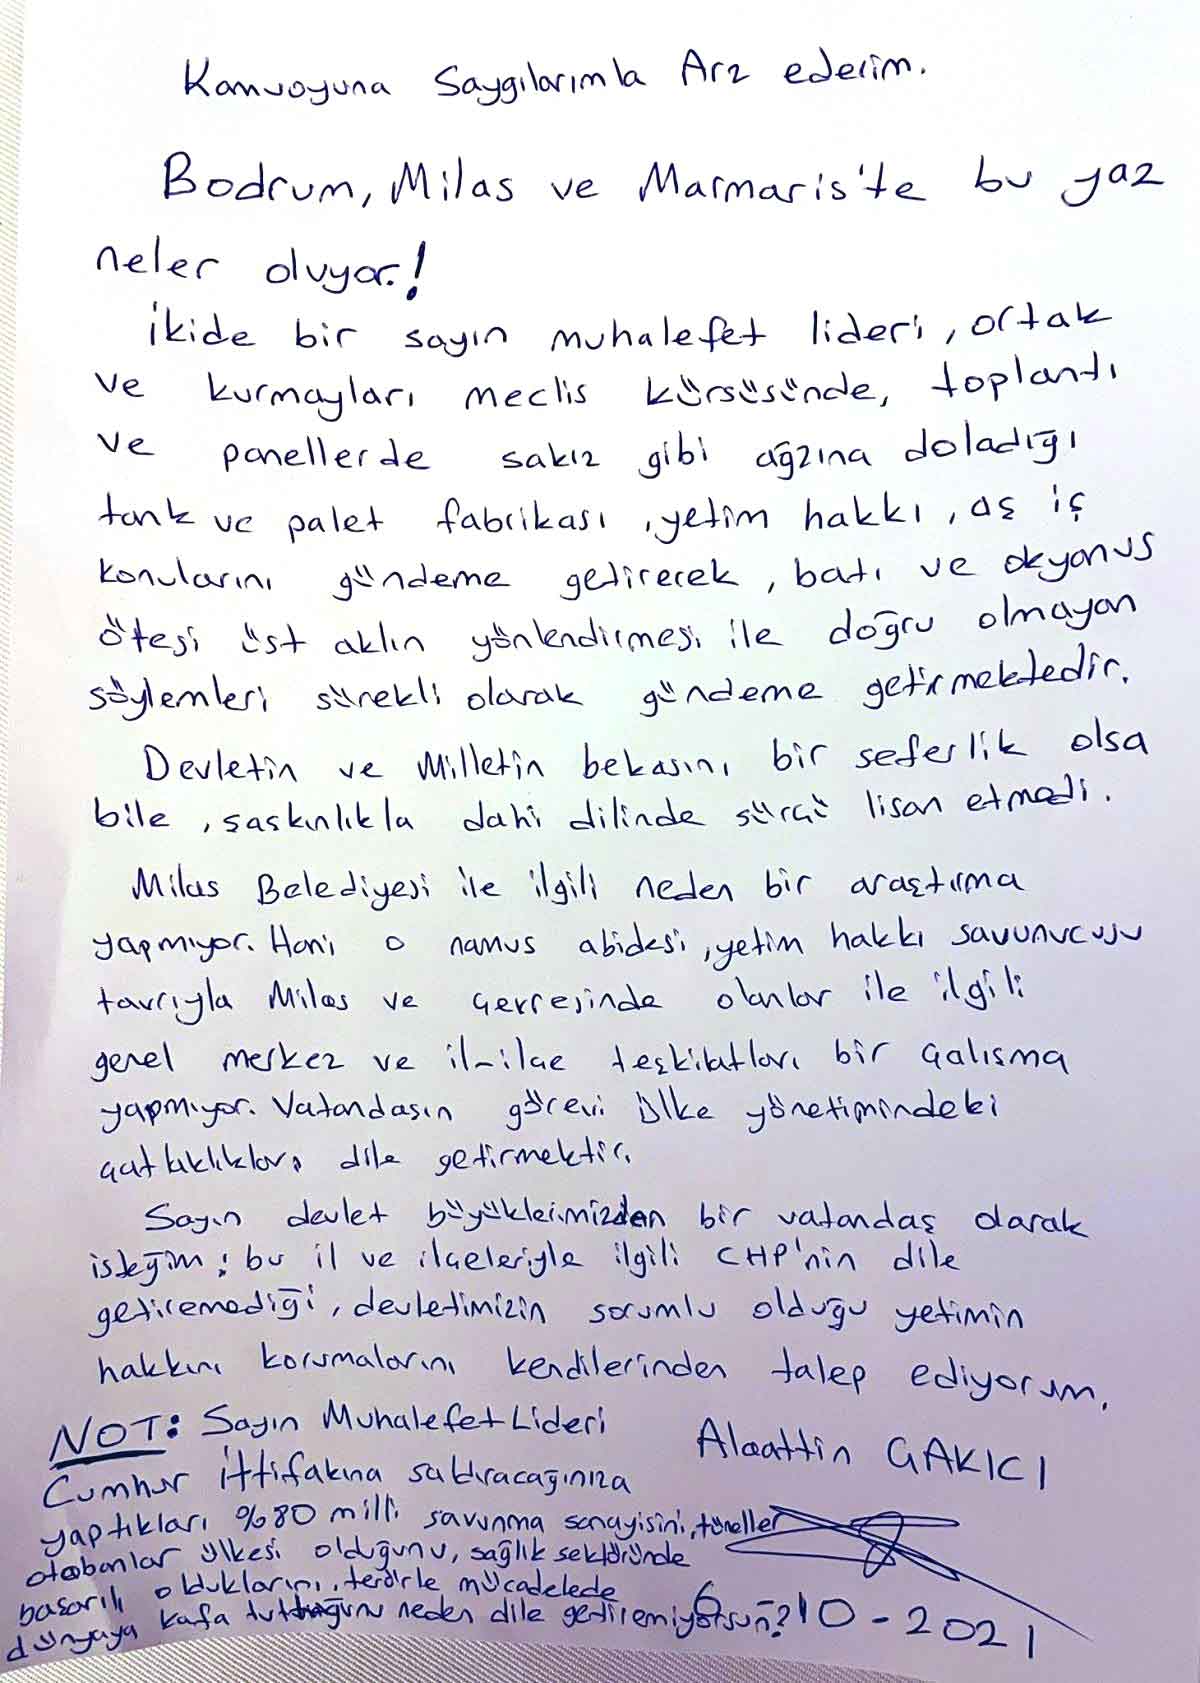 Kamuoyuna Saygılarımla Arz ederim.
Bodrum, Milas ve Marmaris'te bu yaz
neler oluyor.!
İkide bir sayın muhalefet lideri, ortak
ve kurmayları meclis kürsüsünde, toplantı
ve panellerde sakız gibi ağzına doladığı
tank ve palet fabrikası, yetim hakkı, aş iş
konularını gündeme getirecek, batı ve okyanus
ötesi üst aklın yönlendirmesi ile doğru olmayan
söylemleri sürekli olarak gündeme getirmektedir.
Devletin ve Milletin bekasını bir seferlik olsa
bile, şaskınlıkla dahi dilinde sürçü lisan etmedi.
Milas Belediyesi ile ilgili neden bir araştırma
yapmıyor. Hani o namus abidesi, yetim hakkı savunucusu
tavrıyla Milas ve çevresinde olanlar ile ilgili
genel merkez ve il-ilçe teşkilatları bir çalışma
yapmıyor. Vatandaşın görevi ülke yönetimindeki
çatlaklıkları dile getirmektir.
Sayın devlet büyüklerimizden bir vatandaş olarak
isteğim; bu il ve ilçeleriyle ilgili CHP'nin dile
getiremediği, devletimizin sorumlu olduğu yetimin
hakkını korumalarını kendilerinden talep ediyorum.
NOT: Sayın Muhalefet Lideri
Alaattin ÇAKICI
Cumhur İttifakına saldıracağınıza
yaptıkları %80 milli savunma sanayisini, tüneller
otobanlar ülkesi olduğunu, sağlık sektöründe
başarılı olduklarını, terörle mücadelede
dünyaya kafa tuttuğunu neden dile getiremiyorsun?
6-10-2021